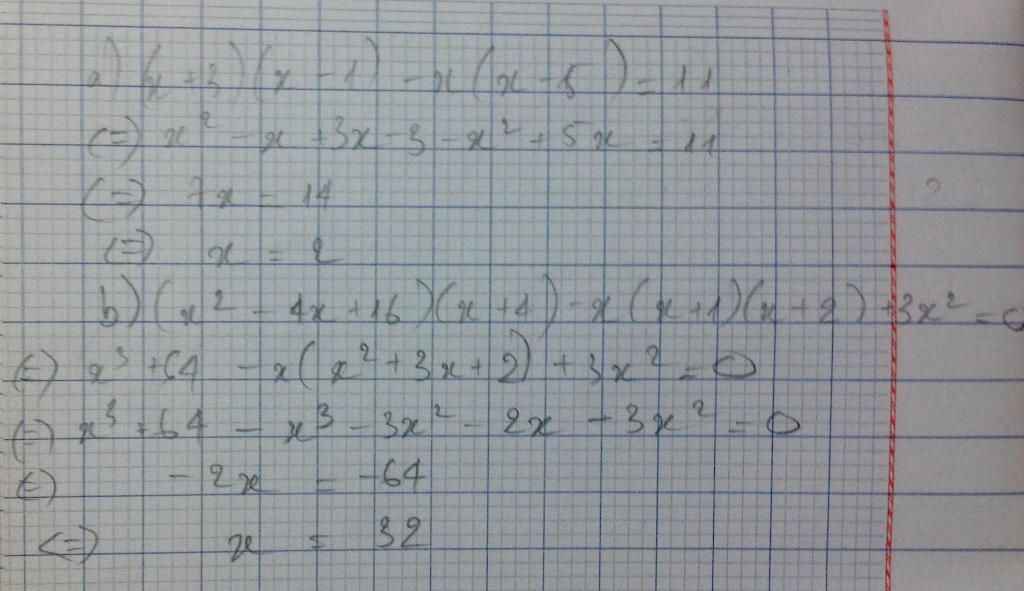 a) (x+3)(x-1) - x(x-5) = 11
(=) x² - x + 3x - 3 - x² + 5x = 11
(=) 7x = 14
(=) x = 2
b) (x² - 4x + 16)(x+4) - x(x+1)(x+2) + 3x² = 0
(=) x³ + 64 - x(x² + 3x + 2) + 3x² = 0
(=) x³ + 64 - x³ - 3x² - 2x + 3x² = 0
(=) -2x = -64
<=> x = 32